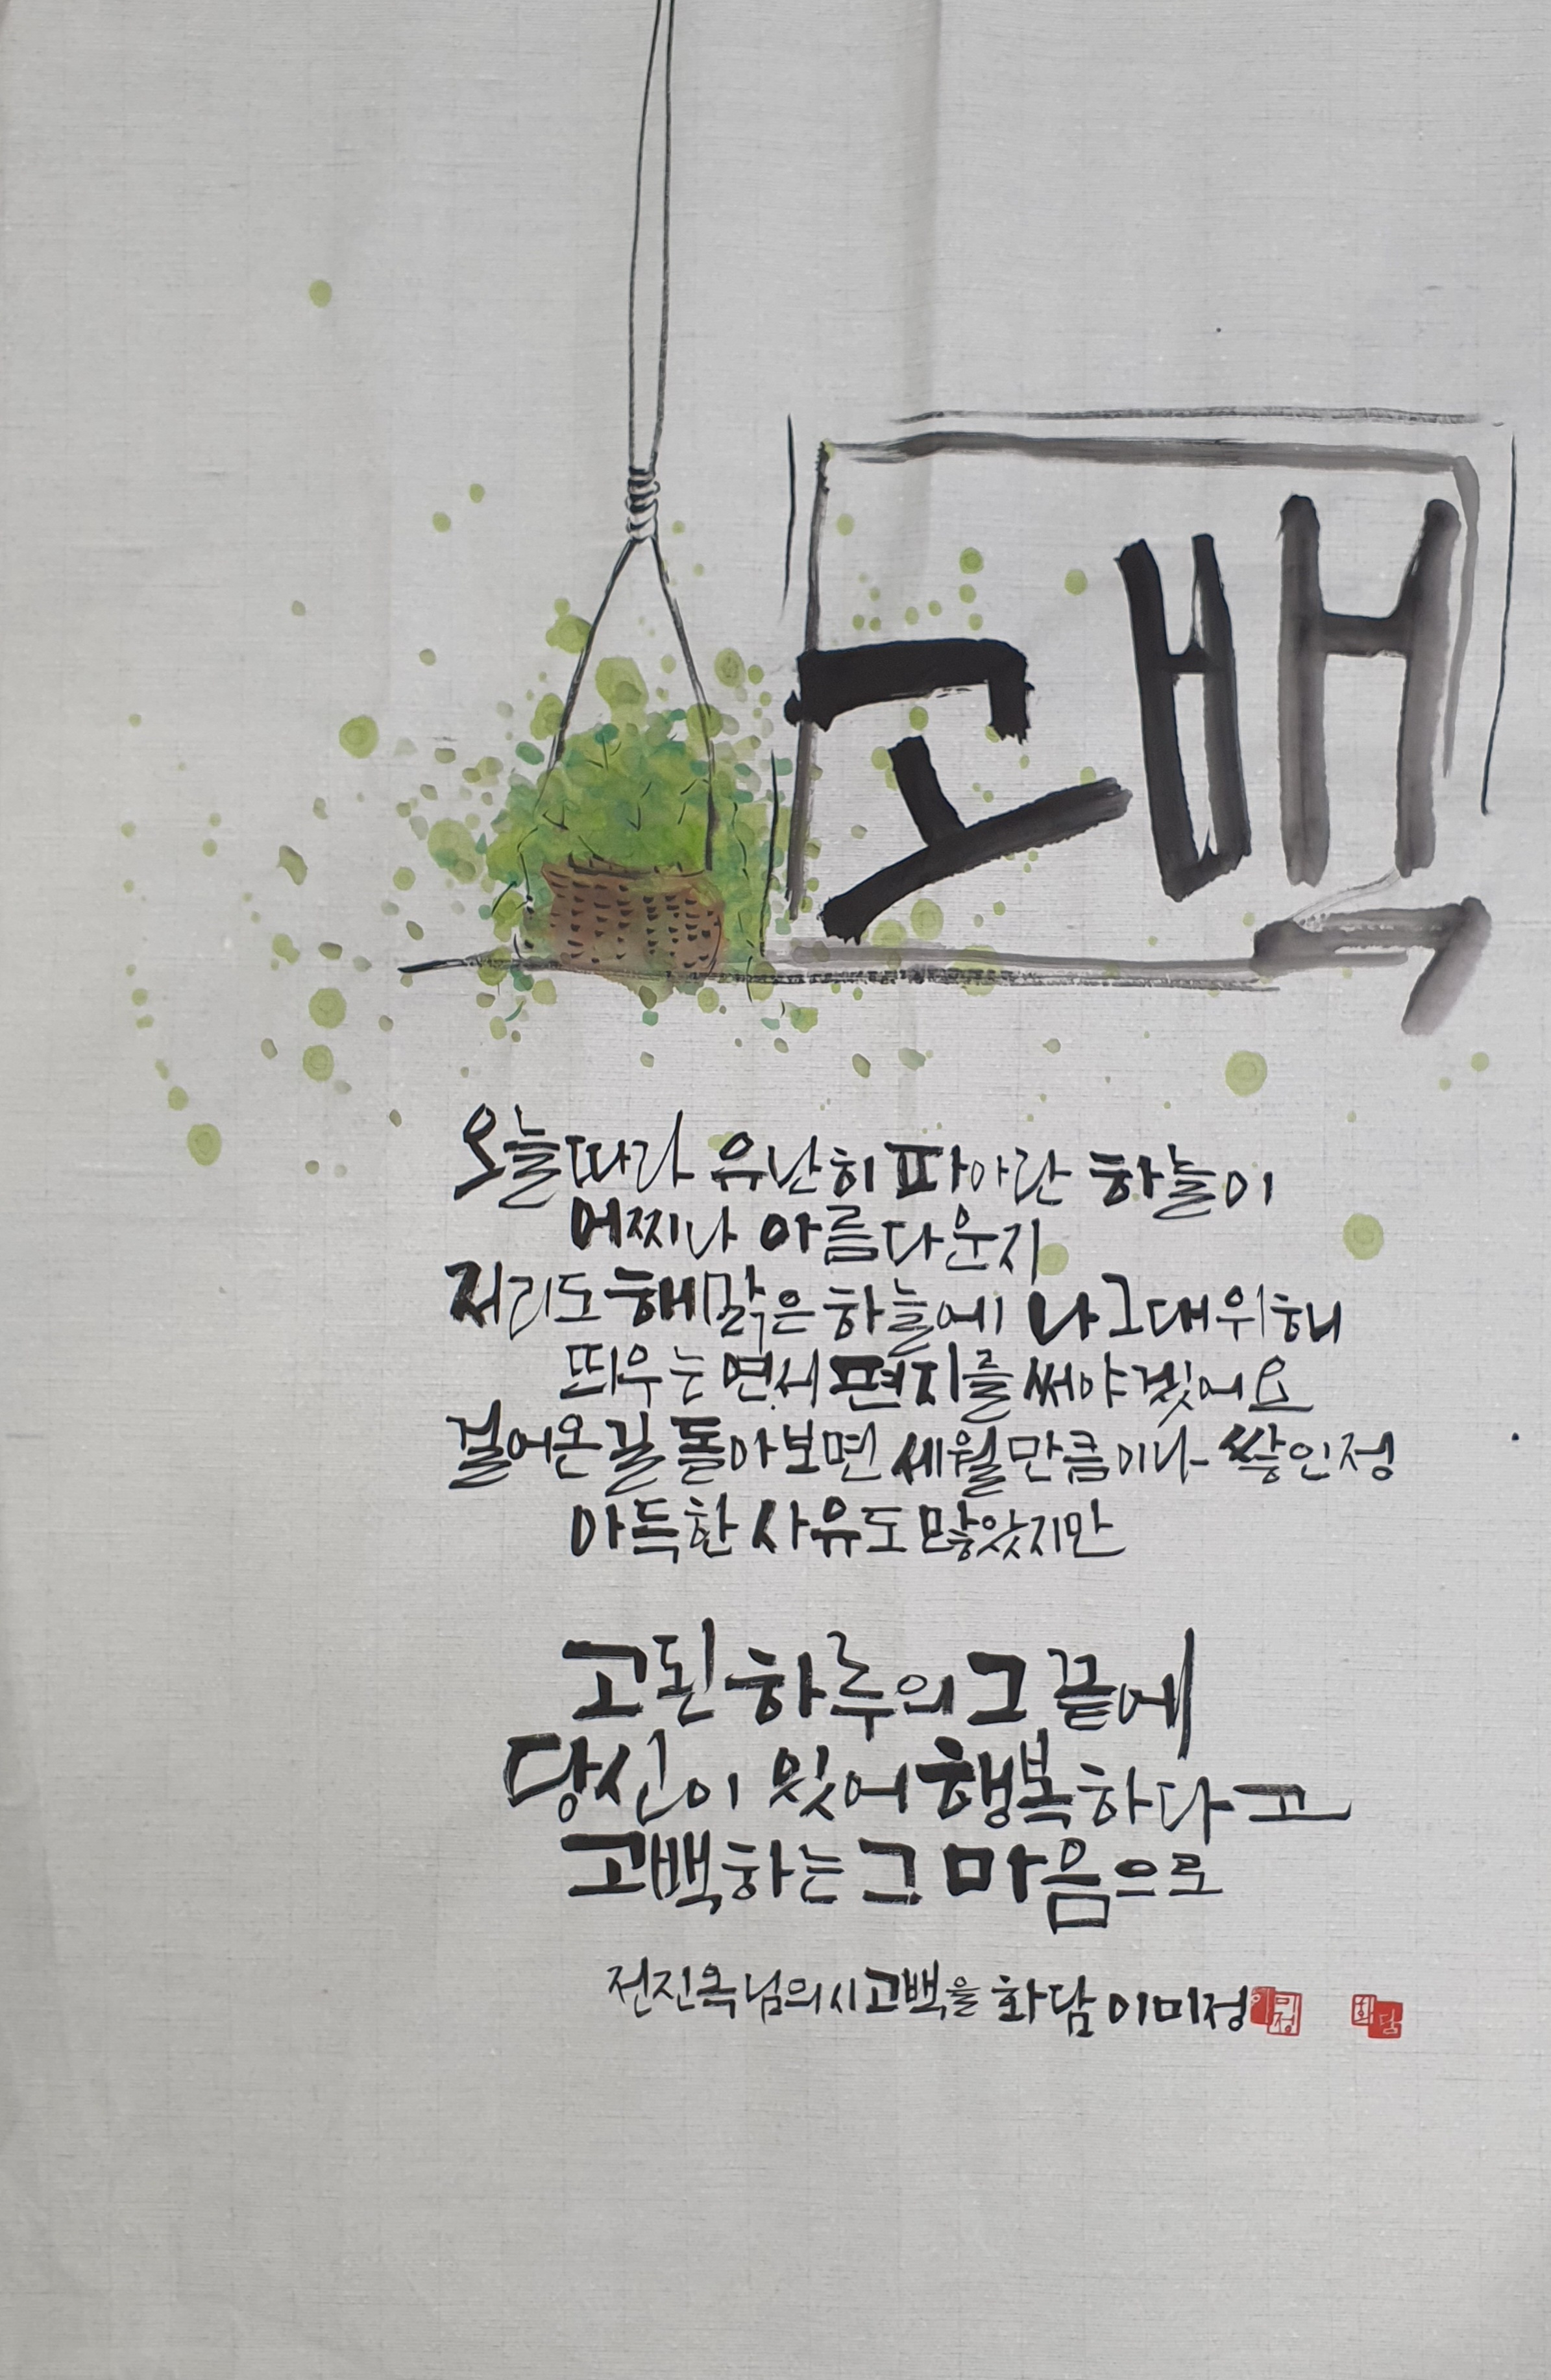 고백
오늘따라 유난히 파아란 하늘이
어찌나 아름다운지
저리도 해맑은 하늘에 나 그대 위해
띄우는 연서 편지를 써야겠어요
걸어온 길 돌아보면 세월만큼이나 쌓인 정
아득한 사유도 많았지만
고된 하루의 그 끝에
당신이 있어 행복하다고
고백하는 그 마음으로
전진옥님의 시 고백을 화담 이미정
이미정
화담